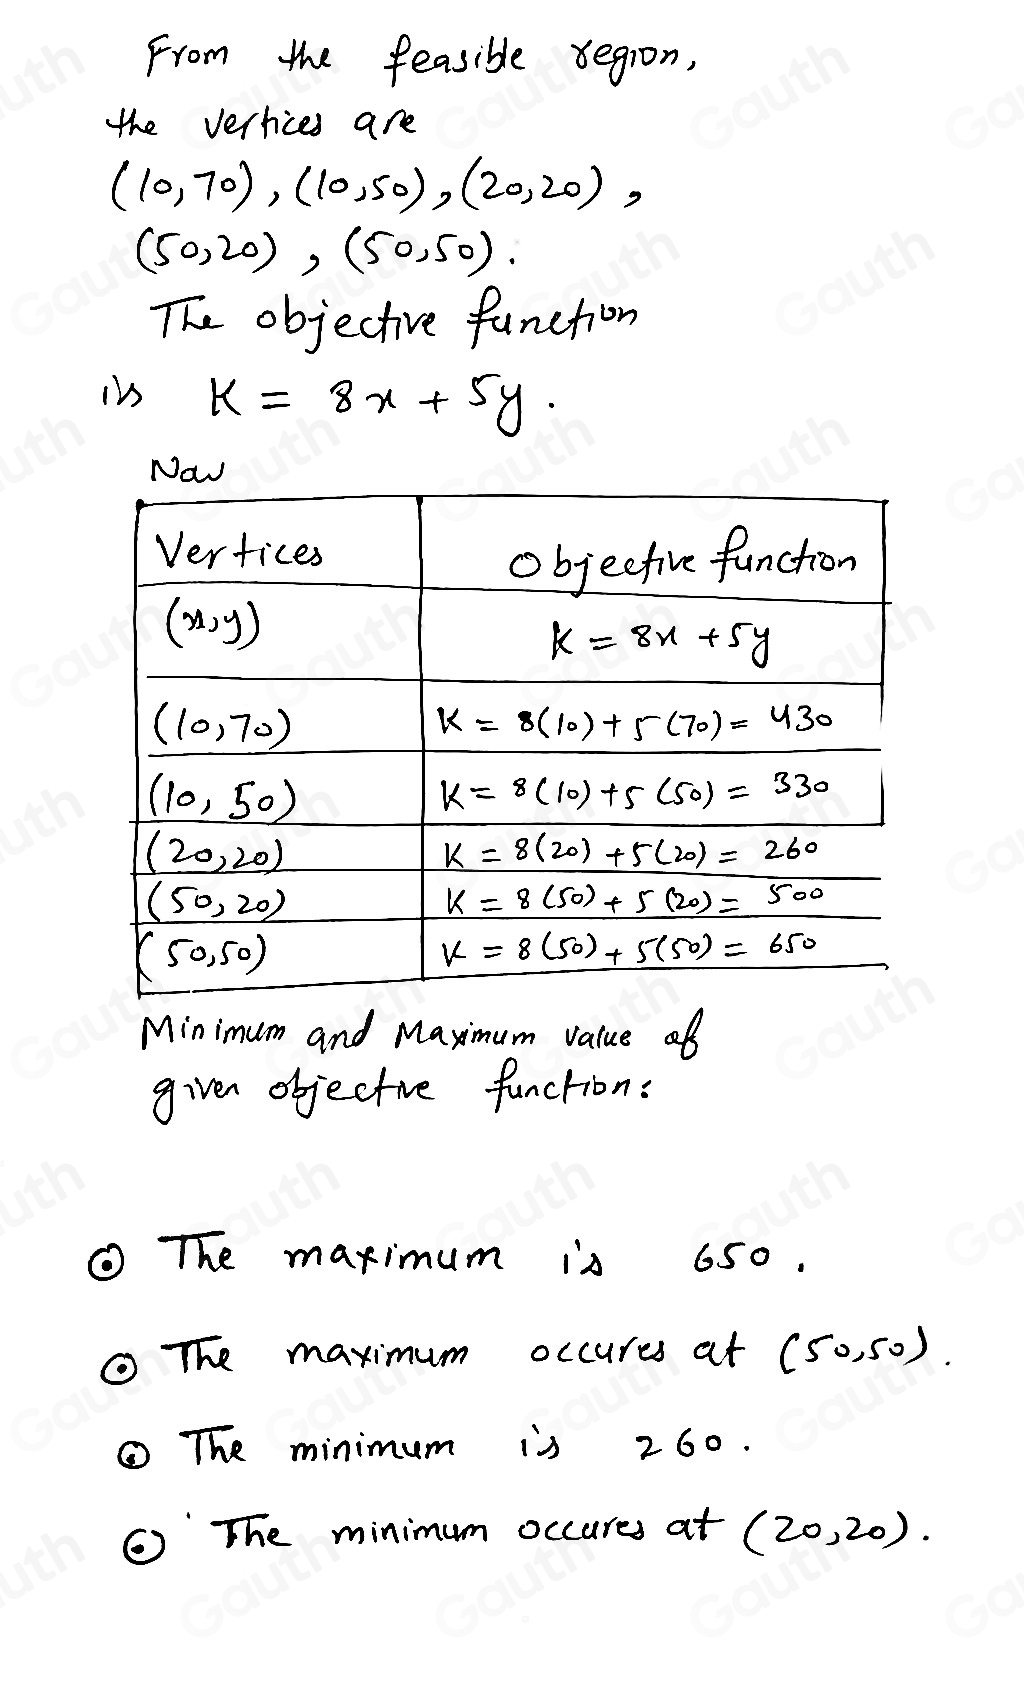 From the feasible region,
the vertices are
(10,70), (10,50), (20,20),
(50,20), (50,50).
The objective function
is K = 8x + 5y.
Now
Vertices Objective function
(x,y) K = 8x + 5y
(10,70) K = 8(10) + 5(70) = 430
(10, 50) K = 8(10) + 5(50) = 330
(20,20) K = 8(20) + 5(20) = 260
(50, 20) K = 8(50) + 5(20) = 500
(50,50) K = 8(50) + 5(50) = 650
Minimum and Maximum value of
given objective function:
The maximum is 650.
The maximum occures at (50,50).
The minimum is 260.
The minimum occures at (20,20).